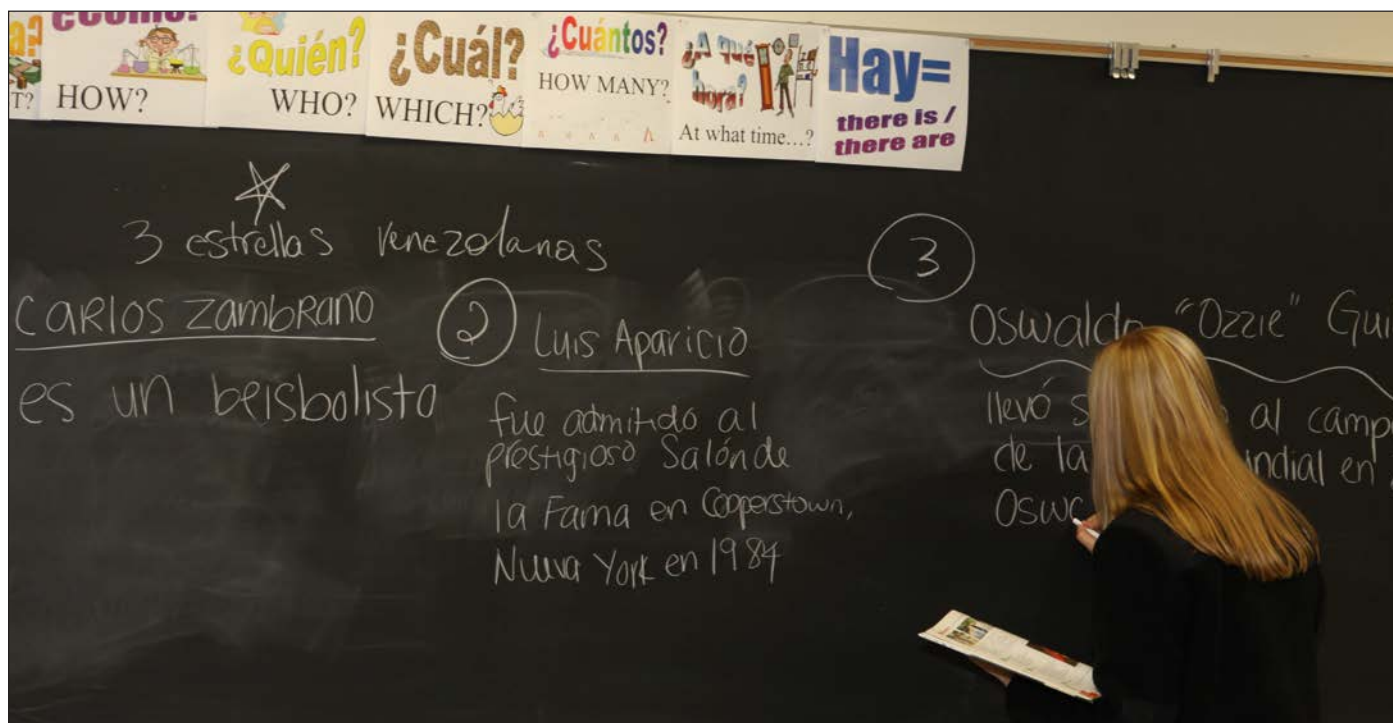 ¿Cómo?
HOW?
¿Quién?
WHO?
¿Cuál?
WHICH?
¿Cuántos?
HOW MANY?
¿A qué
hora?
At what time...?
Hay=
there is /
there are
3 estrellas venezolanas
CARLOS ZAMBRANO
es un beisbolista
2
Luis Aparicio
fue admitido al
prestigioso Salón de
la Fama en Cooperstown,
Nueva York en 1984
3
Oswaldo "Ozzie"
llevó al
de la en